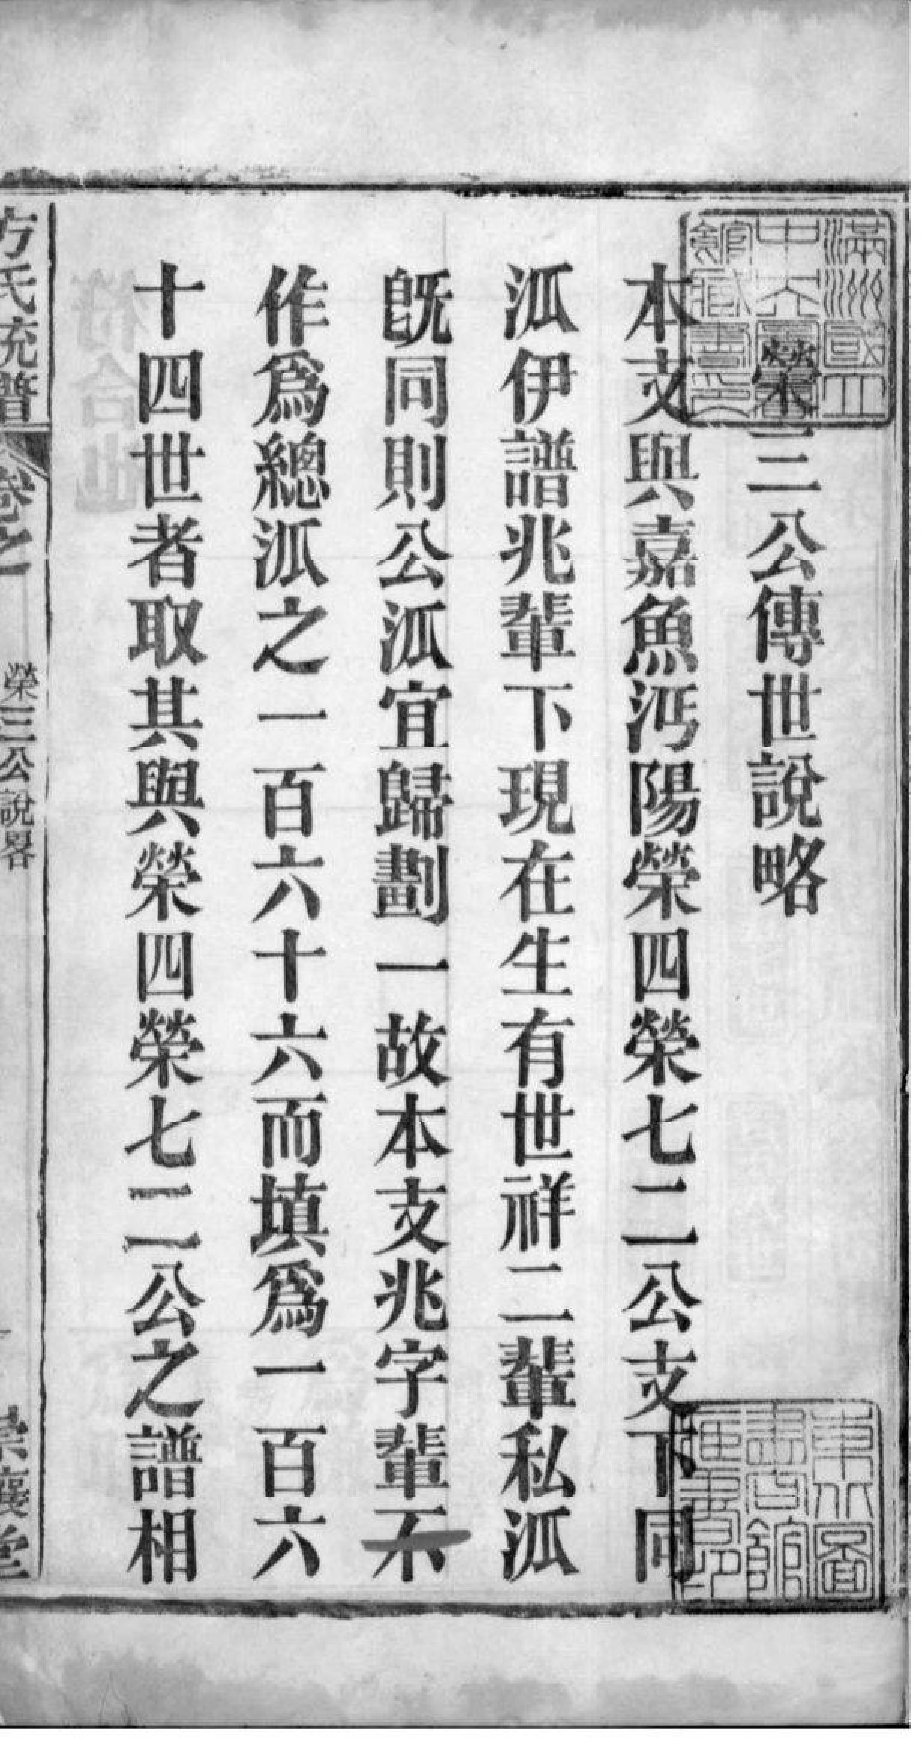 滿洲國立
中央圖書
館藏書印
榮三公傳世說略
本支與嘉魚沔陽榮四榮七二公支下同
泒伊譜兆輩下現在生有世祥二輩私泒
旣同則公泒宜歸劃一故本支兆字輩不
作爲總泒之一百六十六而填爲一百六
十四世者取其與榮四榮七二公之譜相
方氏統譜 卷之 榮三公說畧 一 堂
東北圖
書館